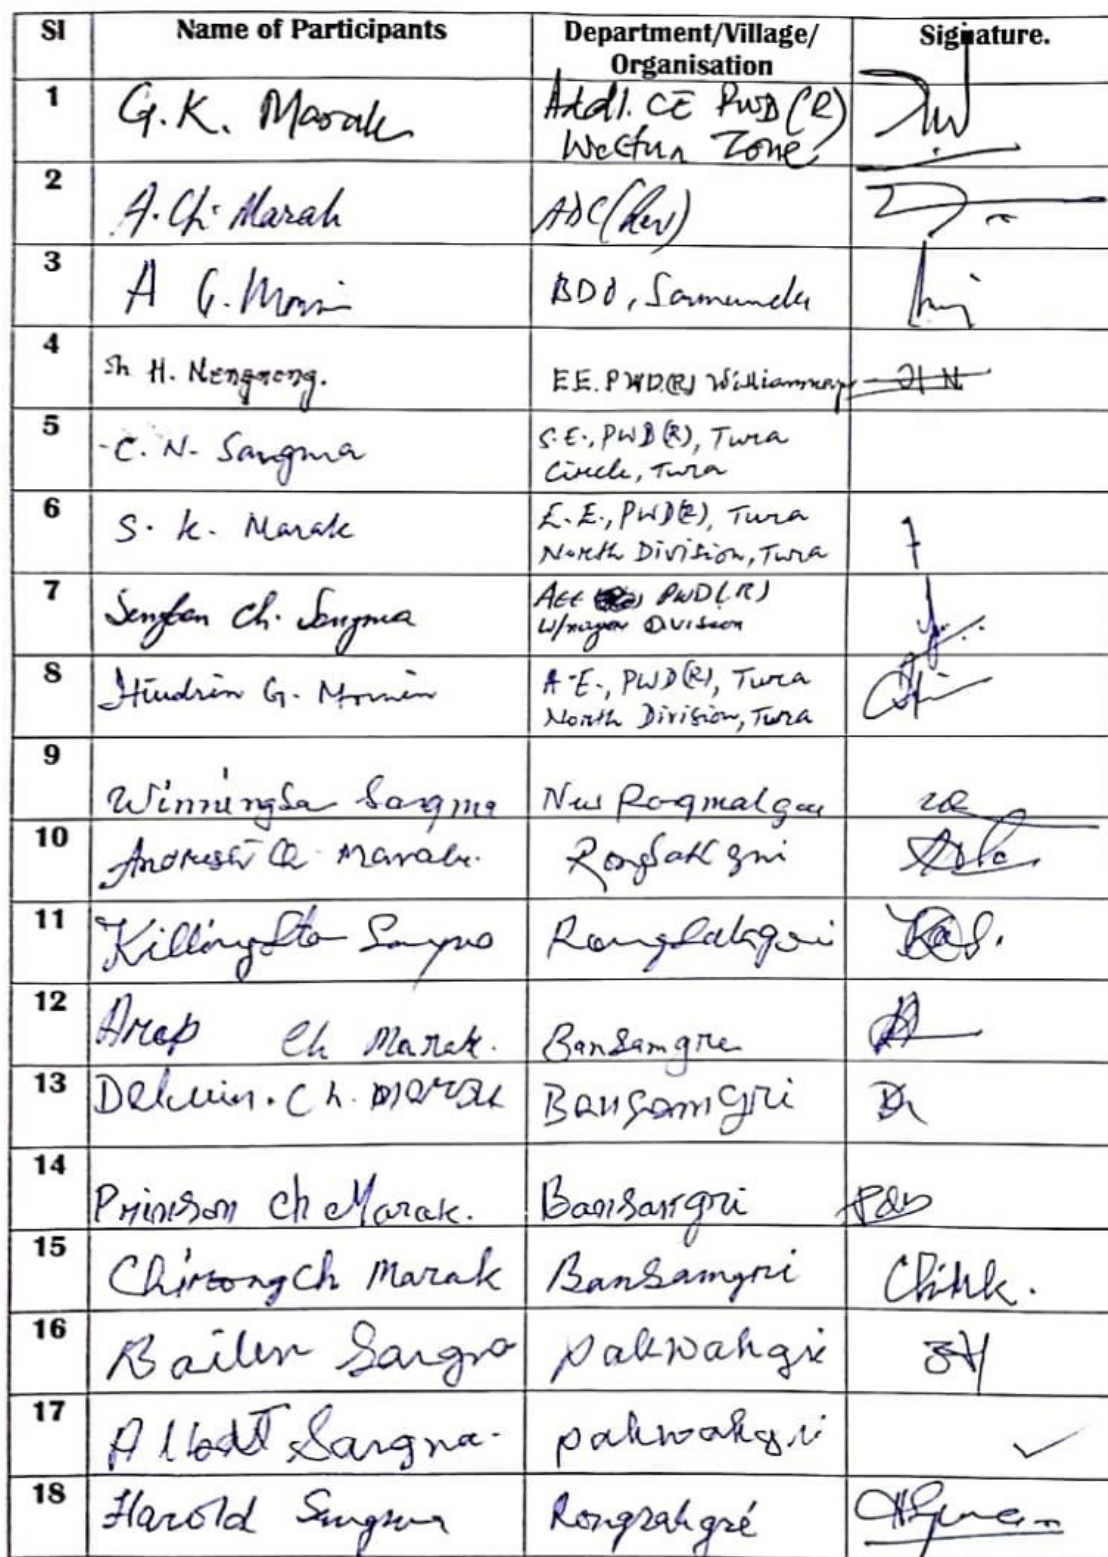 Sl Name of Participants Department/Village/ Signature.
Organisation
1 G.K. Marak Addl. CE PWD (R)
Western Zone
2 A. Ch. Marak ADC (Rev)
3 A G. Momin BDO, Samanda
4 Sh H. Nengnong. EE. PWD(R) Williamnagar H N
5 C. N. Sangma S.E., PWD (R), Tura
Circle, Tura
6 S. K. Marak E.E., PWD(R), Tura
North Division, Tura
7 Sengban Ch. Sangma AEE PWD (R)
W/nagar Division
8 Hindrin G. Momin A.E., PWD(R), Tura
North Division, Tura
9 Winningsa Sangma New Rongmalgre
10 Marak. Rongsakgri
11 Killingsto Sangma Rongsakgri
12 Arap Ch Marak. Bansamgre
13 Delwin. Ch. Marak Bansamgri
14 Prinson Ch Marak. Bansamgri
15 Chirong Ch Marak Bansamgri
16 Bailen Sangma Pakwakgre
17 Albert Sangma. pakwakgri
18 Harold Sangma Rongrakgre